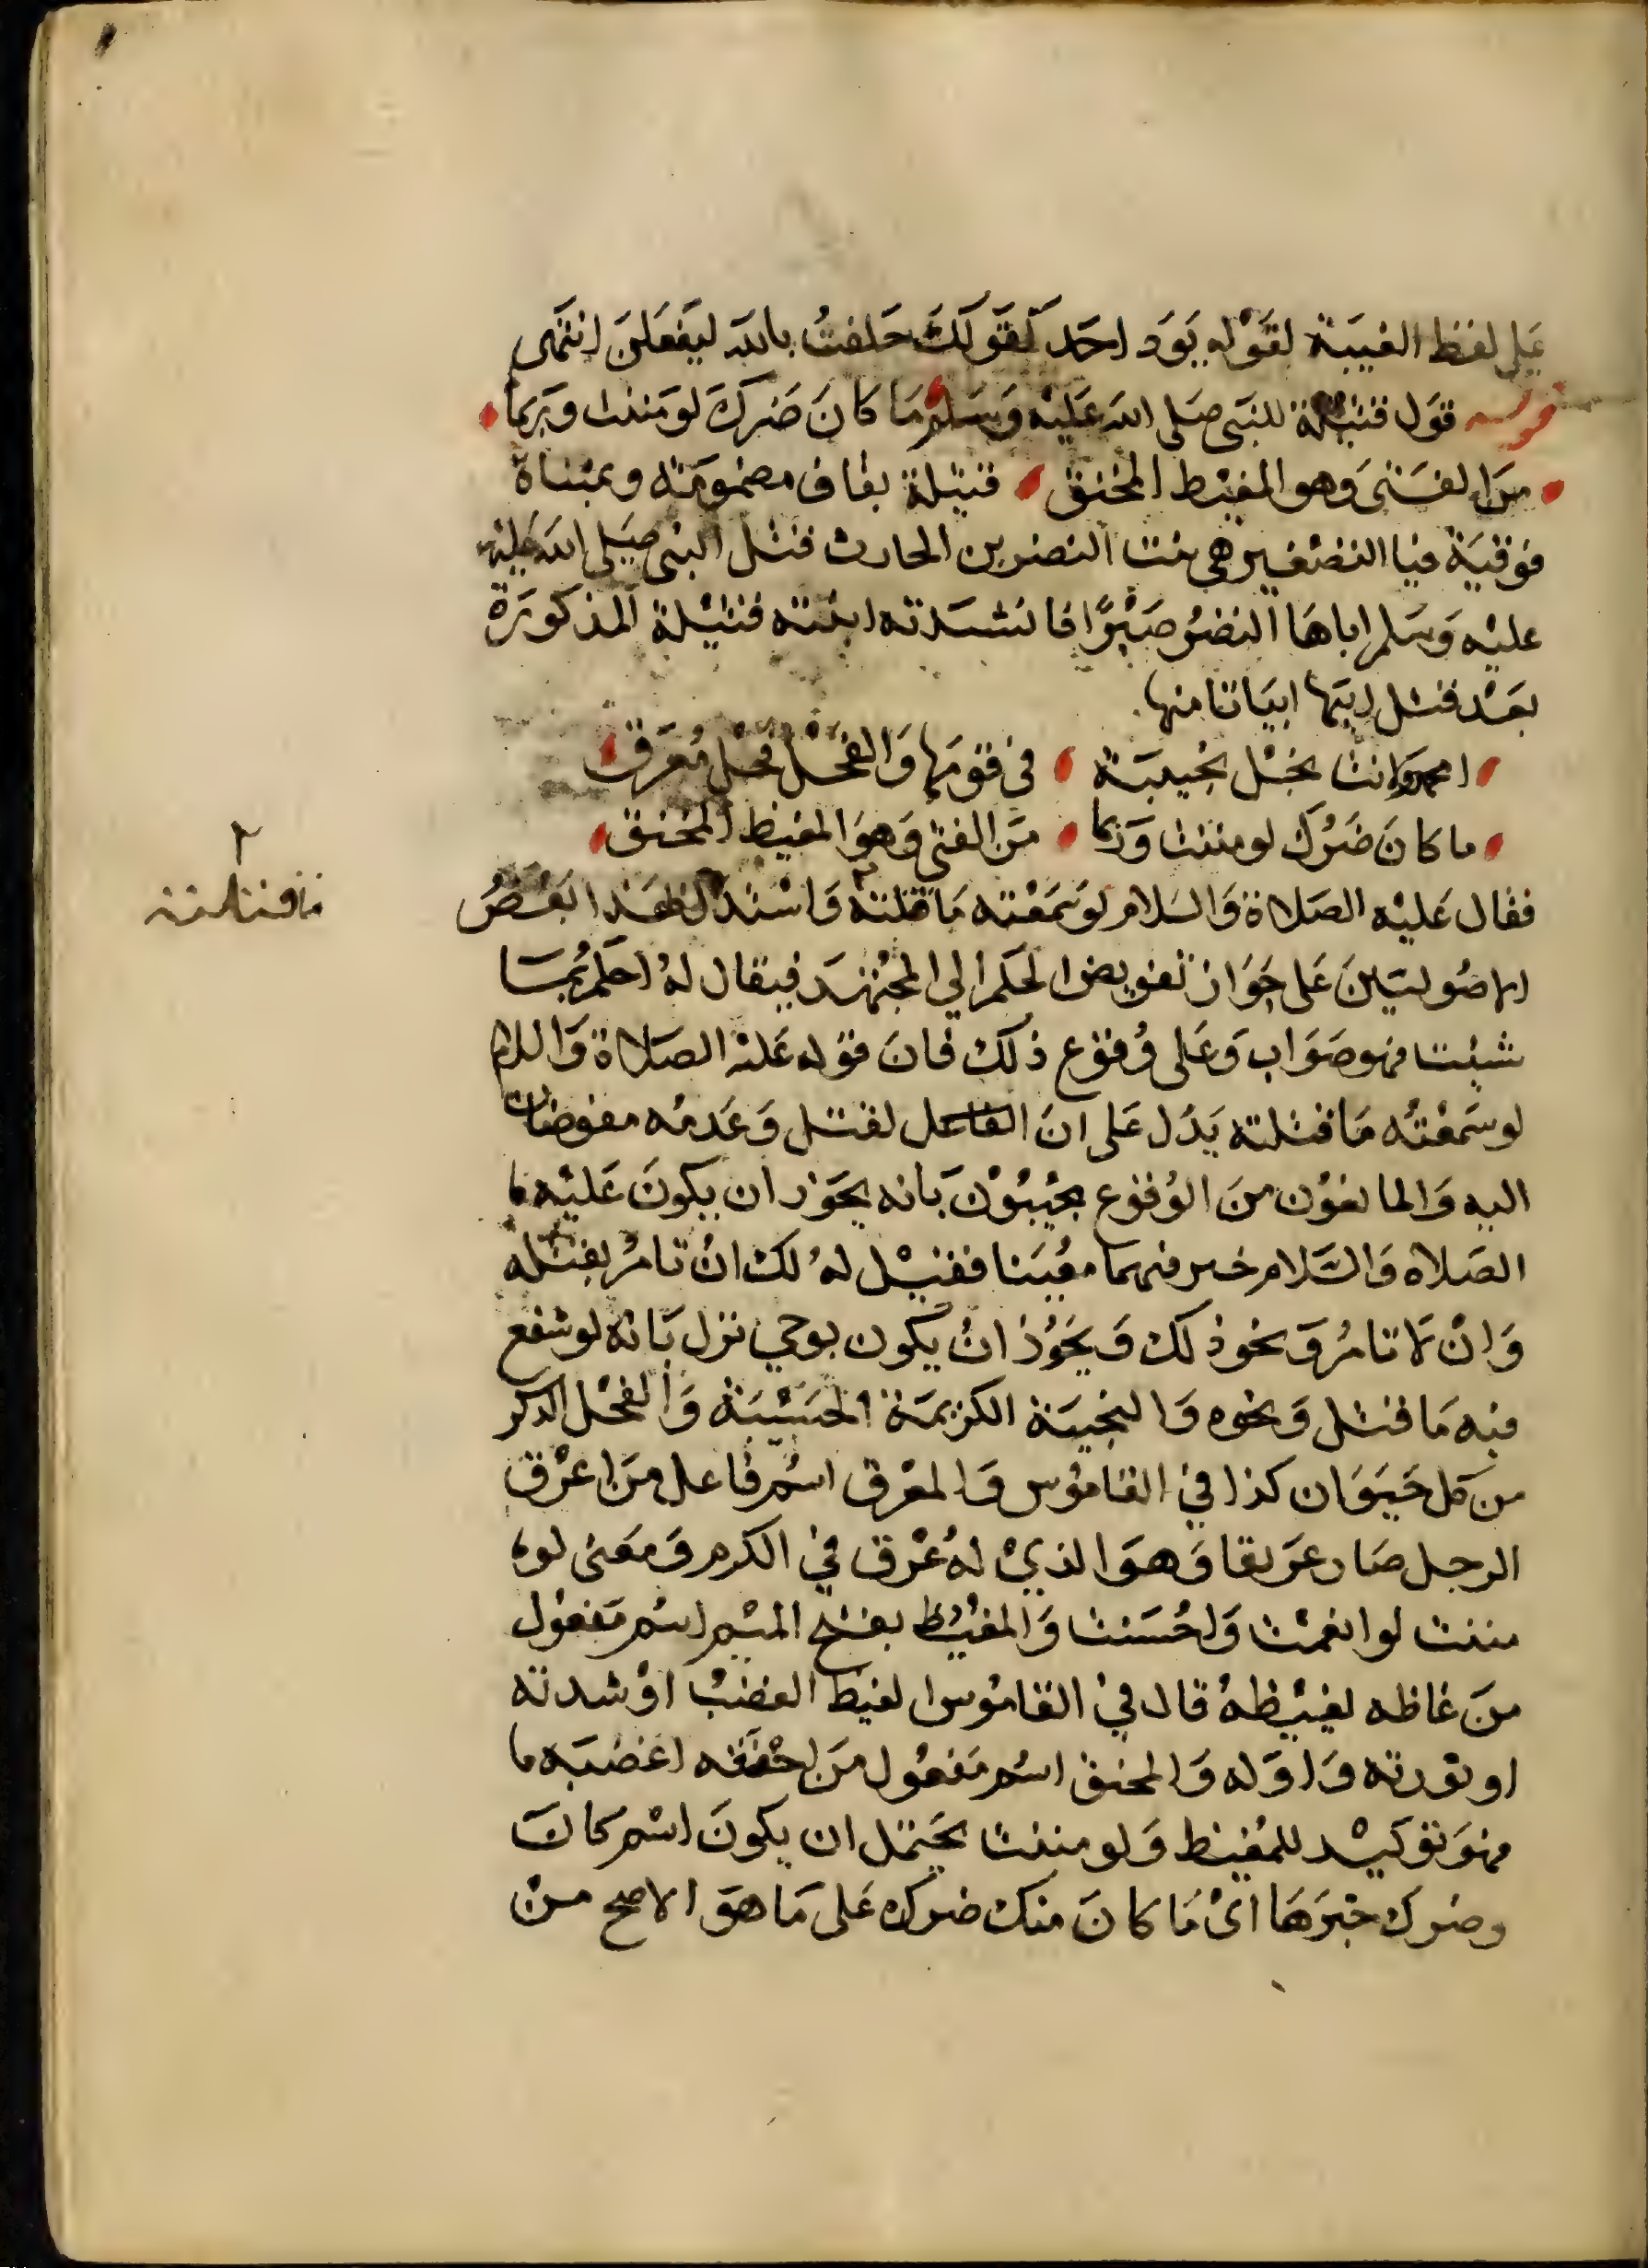 على لفظ الغيبة لقوله يود احد كقولك حلفت بالله ليفعلن انتهى
قوله قول قتيلة للنبى صلى الله عليه وسلم ما كان ضرك لو مننت وربما
من الفتى وهو المغيظ المحنق قتيلة بقاف مضمومة وبمثناة
فوقية فيا التصغير هي بنت النضر بن الحارث قتل النبى صلى الله عليه
عليه وسلم اباها النضر صبرا فانشدته ابنته قتيلة المذكورة
بعد قتل ابيها ابياتا منها
امحمد ولانت نجل نجيبة في قومها والفحل فحل معرق
ما كان ضرك لو مننت وربما من الفتى وهو المغيظ المحنق
فقال عليه الصلاة والسلام لو سمعته ما قتلته واستدل بهذا بعض
الاصوليين على جواز تفويض الحكم الي المجتهد فيقال له احكم بما
شيت فهو صواب وعلى وقوع ذلك فان قوله عليه الصلاة والسلام
لو سمعته ما قتلته يدل على ان القتل وعدمه مفوضان
اليه والمانعون من الوقوع يجيبون بانه يجوز ان يكون عليه
الصلاة والسلام خير فيهما معينا فقيل له لك ان تامر بقتله
وان لا تامر ونحو ذلك ويجوز ان يكون بوحي نزل بانه لو شفع
فيه ما قتل ونحوه والنجيبة الكريمة الحسيبة والفحل الذكر
من كل حيوان كذا في القاموس والمعرق اسم فاعل من اعرق
الرجل صار عريقا وهو الذي له عرق في الكرم ومعنى لو
مننت لو انعمت واحسنت والمغيظ بفتح الميم اسم مفعول
من غاظه يغيظه قال في القاموس الغيظ الغضب او شدته
او ثورته واوله والمحنق اسم مفعول من احنقه اغضبه
فهو توكيد للمغيظ ولو مننت يحتمل ان يكون اسم كان
وضرك خبرها اى ما كان منك ضرك على ما هو الاصح من
ما قتلته